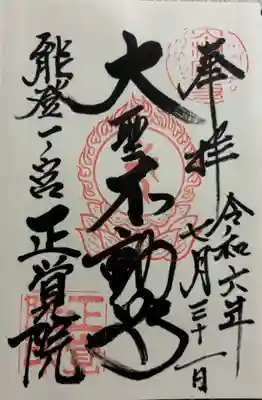 奉拝
令和六年
七月三十一日
大聖不動明王
能登一ノ宮 正覚院
正覚院